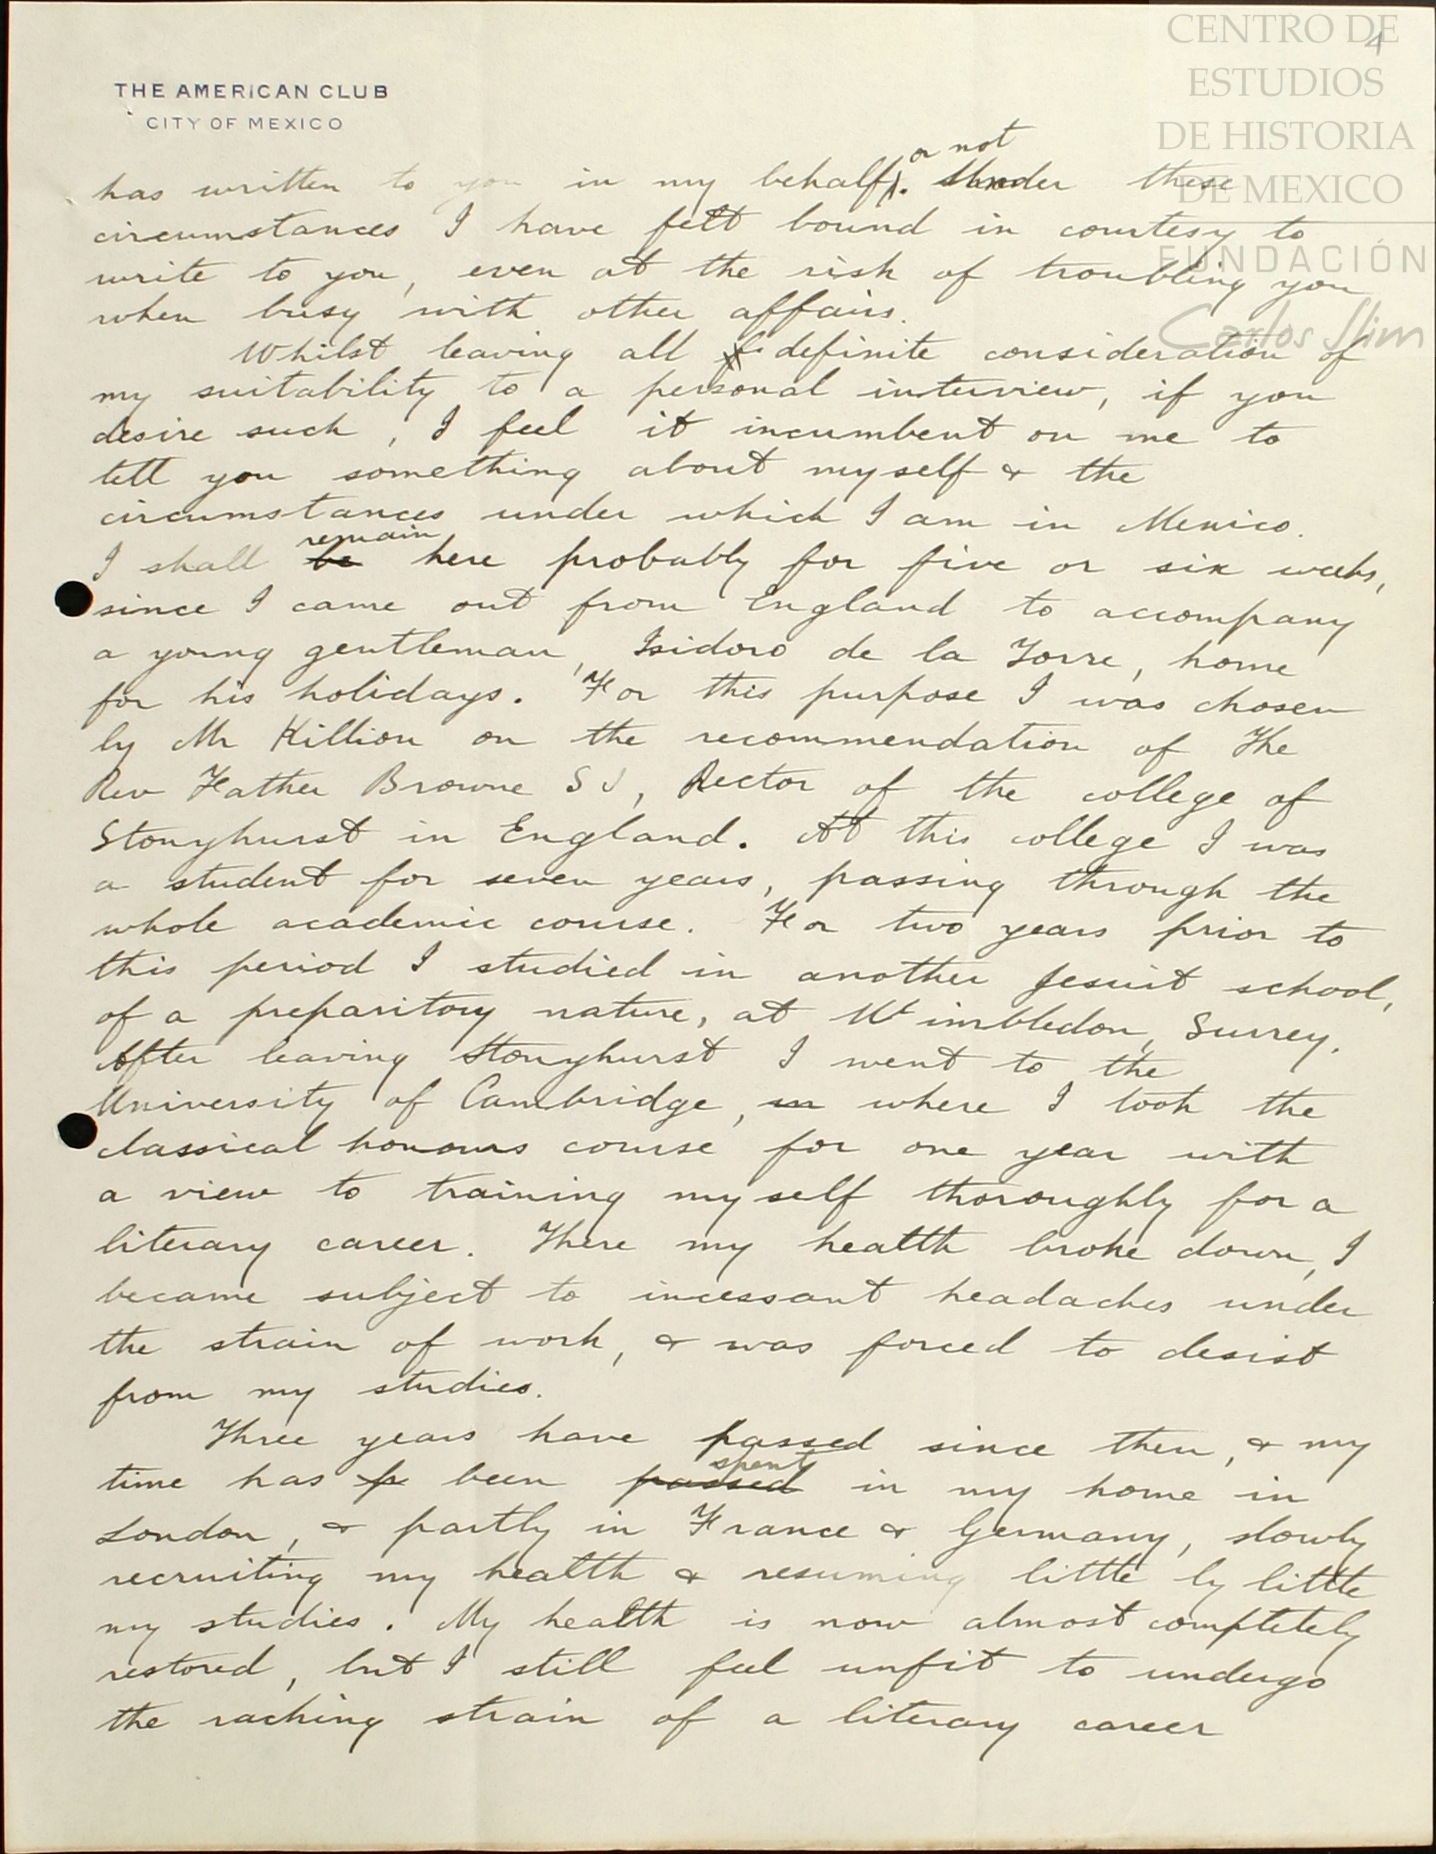 4
CENTRO DE
ESTUDIOS
DE HISTORIA
DE MEXICO
FUNDACIÓN
Carlos Slim
THE AMERICAN CLUB
CITY OF MEXICO
or not
has written to you in my behalf). Under these
circumstances I have felt bound in courtesy to
write to you, even at the risk of troubling you
when busy with other affairs.
Whilst leaving all definite consideration of
my suitability to a personal interview, if you
desire such, I feel it incumbent on me to
tell you something about myself & the
circumstances under which I am in Mexico.
remain
I shall be here probably for five or six weeks,
since I came out from England to accompany
a young gentleman, Isidoro de la Torre, home
for his holidays. For this purpose I was chosen
by Mr Killion on the recommendation of The
Rev Father Browne SJ, Rector of the college of
Stonyhurst in England. At this college I was
a student for seven years, passing through the
whole academic course. For two years prior to
this period I studied in another Jesuit school,
of a preparitory nature, at Wimbledon, Surrey.
After leaving Stonyhurst I went to the
University of Cambridge, in where I took the
classical honours course for one year with
a view to training myself thoroughly for a
literary career. There my health broke down, I
became subject to incessant headaches under
the strain of work, & was forced to desist
from my studies.
Three years have passed since then, & my
spent
time has p been passed in my home in
London, & partly in France & Germany, slowly
recruiting my health & resuming little by little
my studies. My health is now almost completely
restored, but I still feel unfit to undergo
the racking strain of a literary career